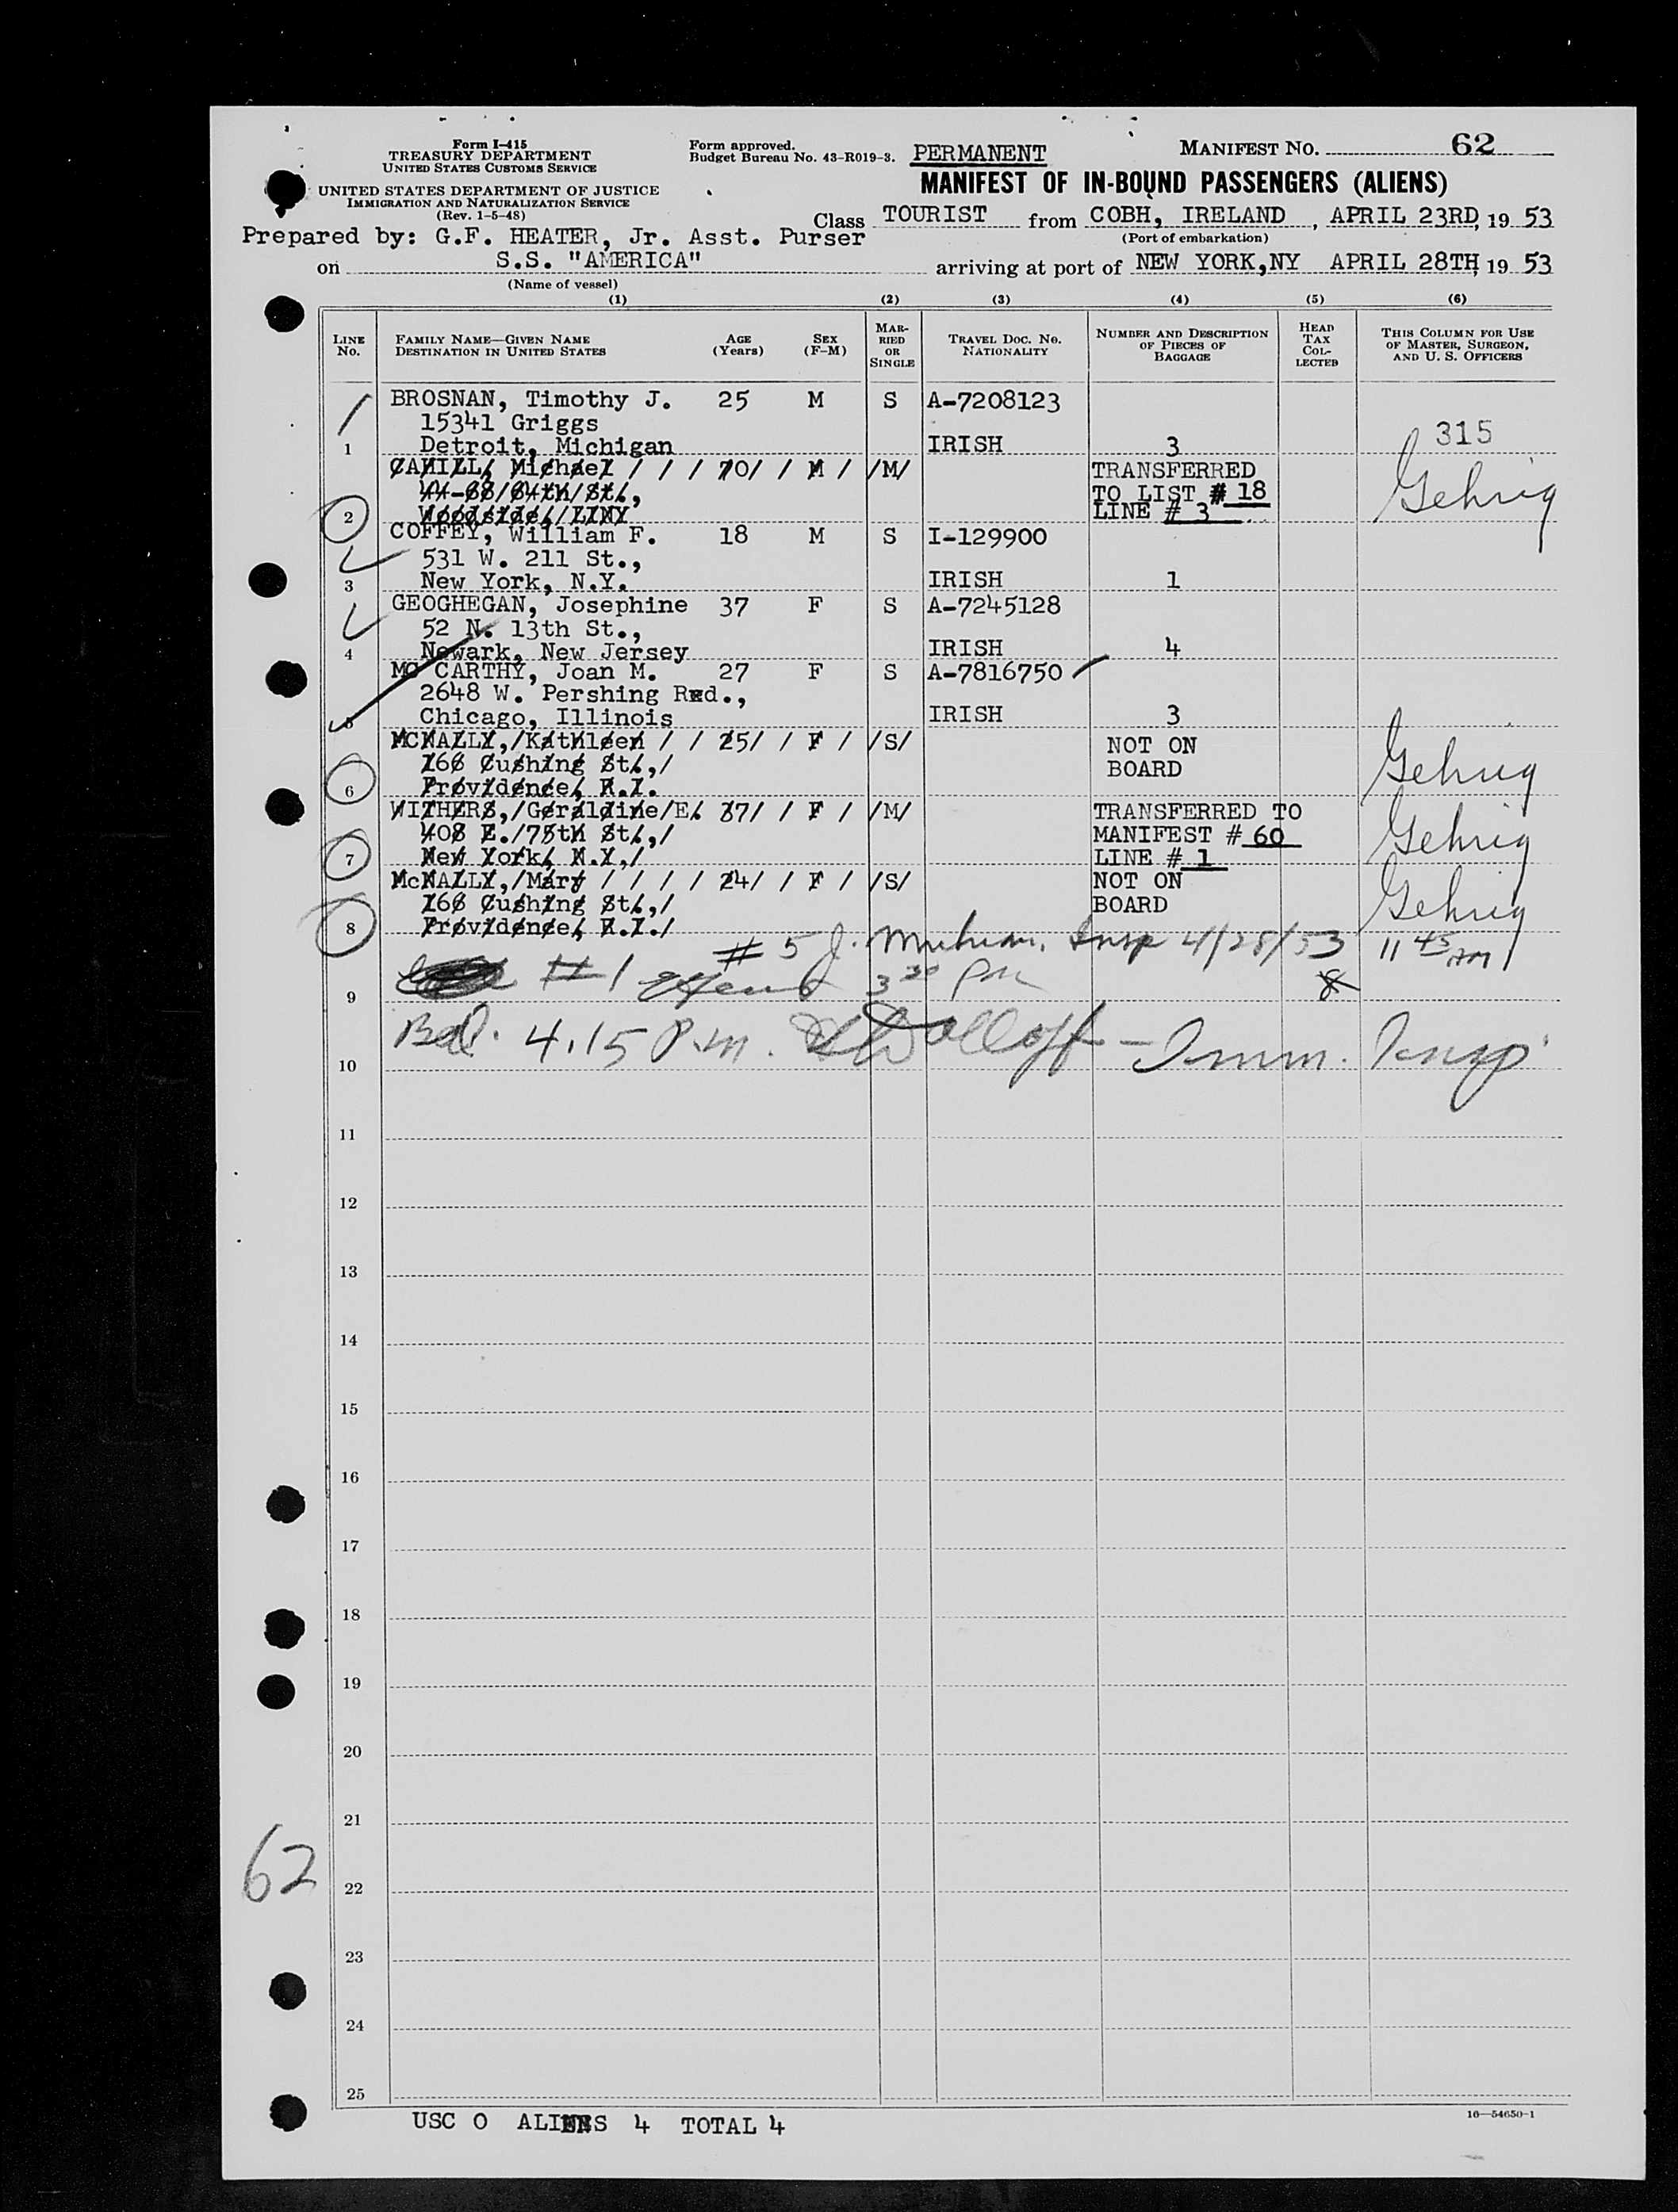 Form I-415
TREASURY DEPARTMENT
UNITED STATES CUSTOMS SERVICE
UNITED STATES DEPARTMENT OF JUSTICE
IMMIGRATION AND NATURALIZATION SERVICE
(Rev. 1-5-48)
Form approved.
Budget Bureau No. 43-R019-3.
PERMANENT
MANIFEST NO. 62
MANIFEST OF IN-BOUND PASSENGERS (ALIENS)
Class TOURIST from COBH, IRELAND, APRIL 23RD, 19 53
(Port of embarkation)
Prepared by: G.F. HEATER, Jr. Asst. Purser
on S.S. "AMERICA" arriving at port of NEW YORK,NY APRIL 28TH 19 53
(Name of vessel)
(1) (2) (3) (4) (5) (6)
LINE No.
FAMILY NAME—GIVEN NAME
DESTINATION IN UNITED STATES
AGE (Years)
SEX (F-M)
MARRIED OR SINGLE
TRAVEL DOC. NO.
NATIONALITY
NUMBER AND DESCRIPTION OF PIECES OF BAGGAGE
HEAD TAX COLLECTED
THIS COLUMN FOR USE OF MASTER, SURGEON, AND U. S. OFFICERS
BROSNAN, Timothy J. 25 M S A-7208123
15341 Griggs
1 Detroit, Michigan IRISH 3 315
CAHILL, Michael 70 M M TRANSFERRED
84th St., TO LIST # 18 Gehrig
2 Woodside, LINY LINE # 3
COFFEY, William F. 18 M S I-129900
531 W. 211 St.,
3 New York, N.Y. IRISH 1
GEOGHEGAN, Josephine 37 F S A-7245128
52 N. 13th St.,
4 Newark, New Jersey IRISH 4
MC CARTHY, Joan M. 27 F S A-7816750
2648 W. Pershing Rd.,
5 Chicago, Illinois IRISH 3
MCNALLY, Kathleen 25 F S NOT ON
166 Cushing St., BOARD Gehrig
6 Providence, R.I.
WITHERS, Geraldine E. 37 F M TRANSFERRED TO
408 E. 75th St., MANIFEST # 60 Gehrig
7 New York, N.Y. LINE # 1
McNALLY, Mary 24 F S NOT ON
166 Cushing St., BOARD Gehrig
8 Providence, R.I.
# 5 J. Insp 4/28/53 11 45 AM
# 1 3 30 PM
9
Bal. 4.15 P.m. Imm. Insp
10
11
12
13
14
15
16
17
18
19
20
21
62
22
23
24
25
USC 0 ALIENS 4 TOTAL 4
16—54650-1